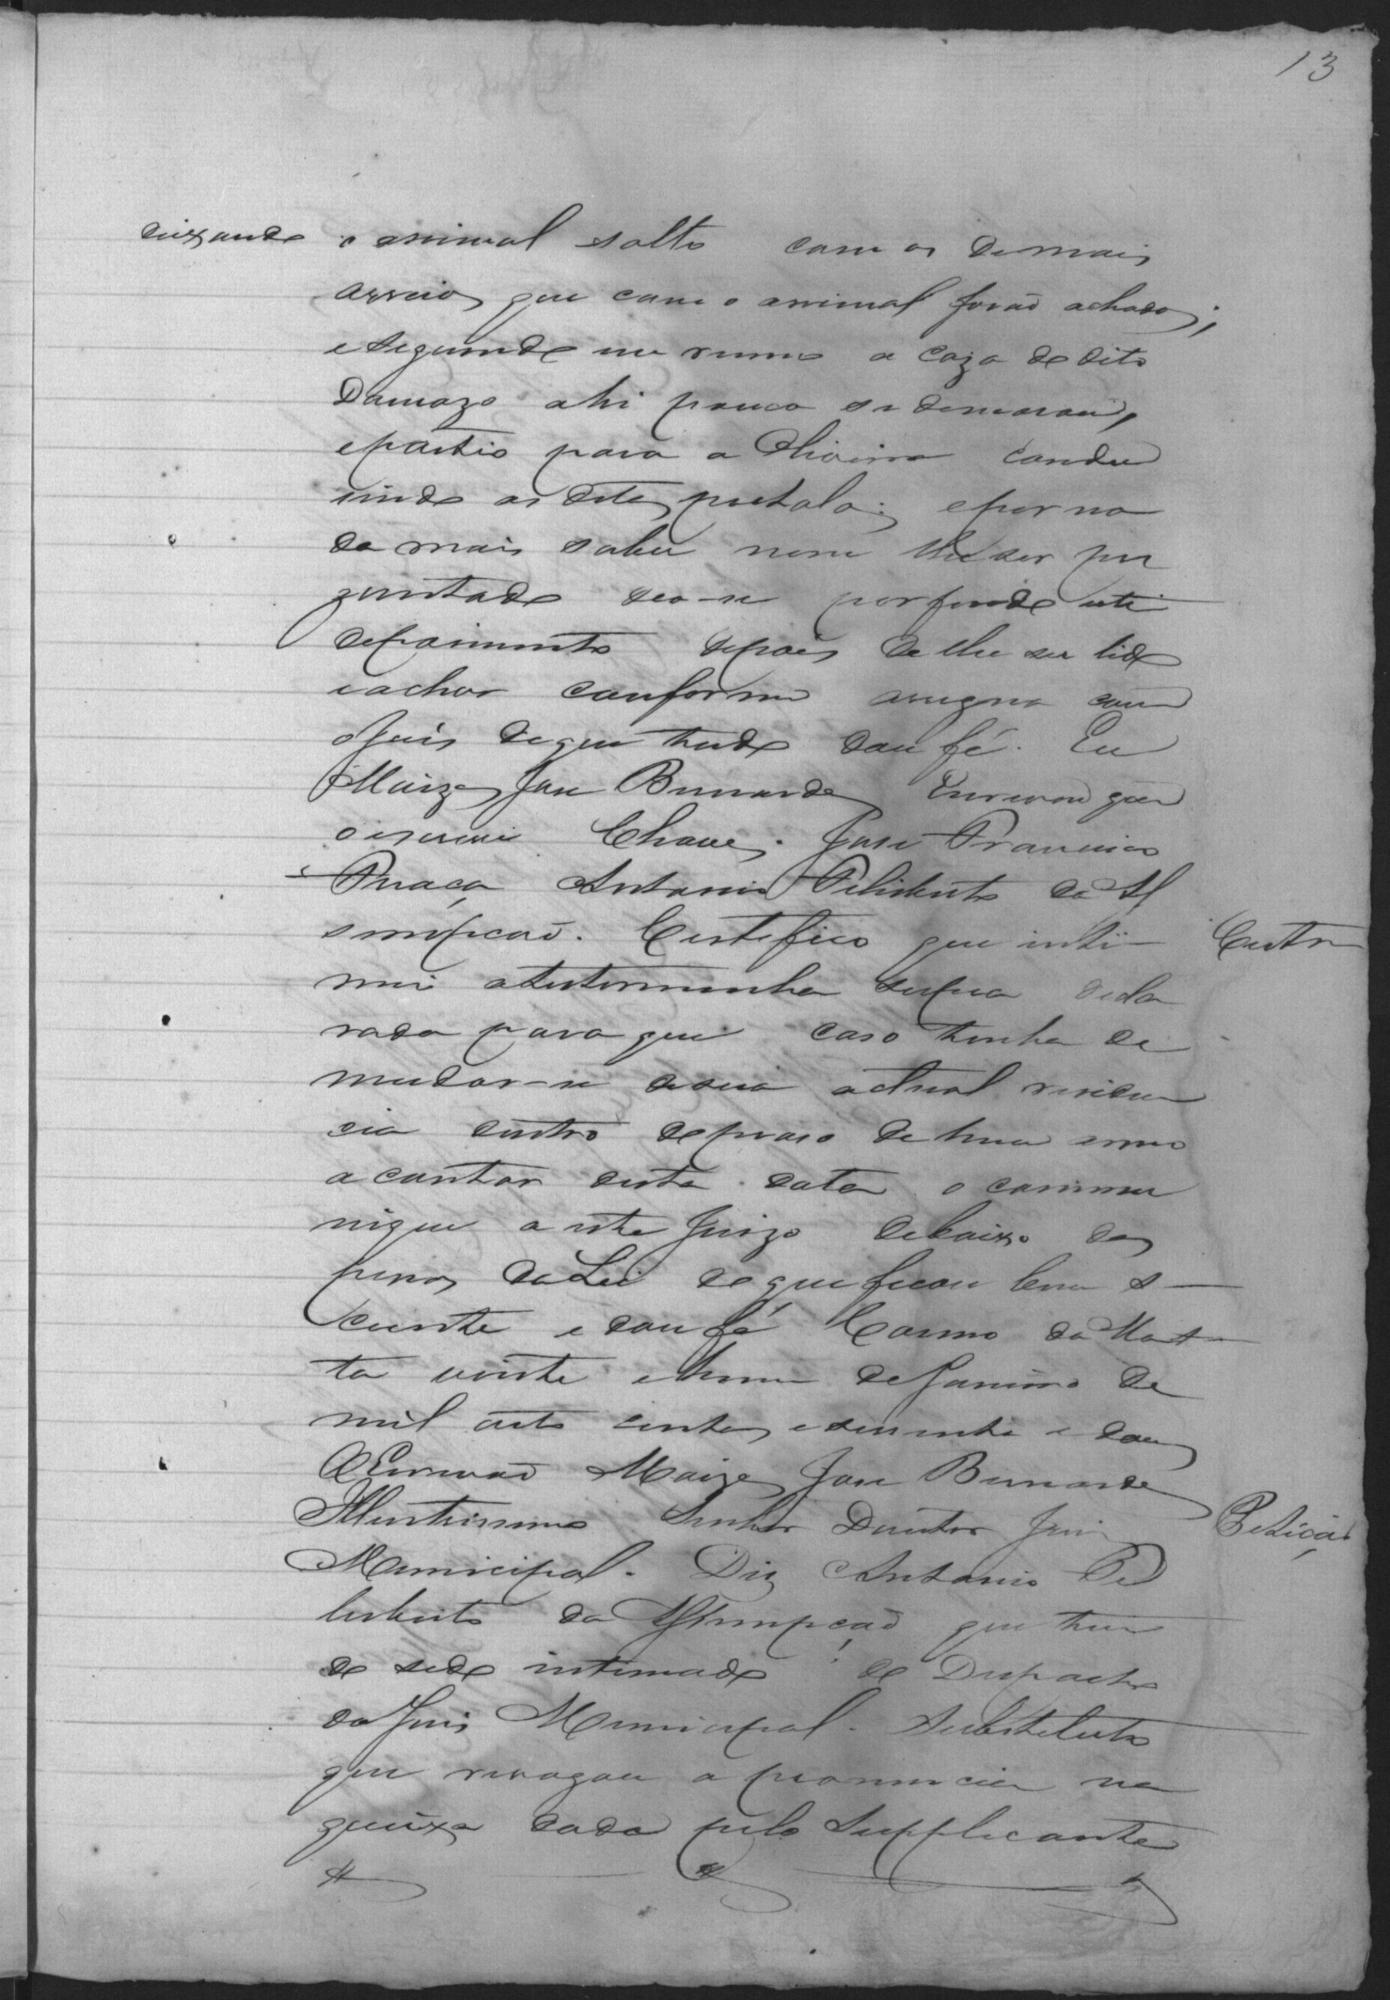 13
deixando o animal solto com os demais
arreios que com o animal forão achados;
e seguindo em rumo a caza do dito
Damazo ahi pouco se demorou,
e partio para a Oliveira condu
zindo as ditas pistolas; e por na
da mais saber nem lhe ser per
guntado deo-se por findo este
depoimento depois de lhe ser lido
e achar conforme assigna com
o Juis do que tudo dou fé. Eu
Moizes Jose Bernardes Escrivão que
o escrevi Chaves. Jose Francisco
Praça Antonio Felisberto da As
sumpcaõ. Certifico que inti
Certam
mei a testemunha supra decla
rada para que caso tenha de
mudar-se de sua actual residen
cia dentro do praso de hum anno
a contar desta data o commu
nique a este Juizo debaixo das
penas da Lei do que ficou bem s
ciente e dou fé Carmo da Mat
ta vinte e hum de Janeiro de
mil oito centos e secenta e dous
O Escrivaõ Moizes Jose Bernardes
Illustrissimo Senhor Doutor Juis
Petição
Municipal. Diz Antonio Fe
lisberto da Assumpcaõ que ten
do sido intimado do Despacho
do Juis Municipal Substituto
que revogou a pronuncia na
queixa dada pelo Supplicante